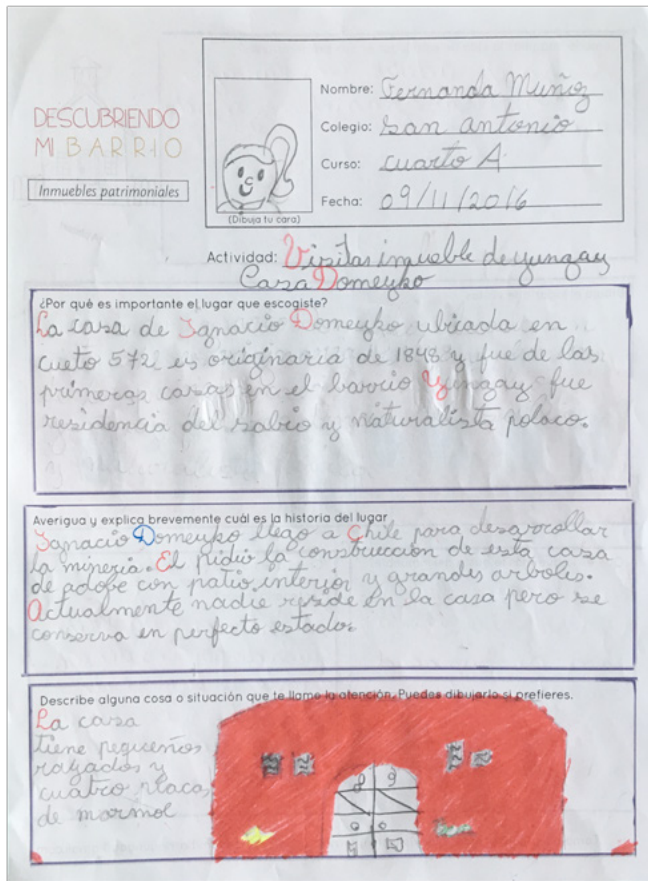 DESCUBRIENDO
MI BARRIO
Inmuebles patrimoniales
(Dibuja tu cara)
Nombre: Fernanda Muñoz
Colegio: san antonio
Curso: cuarto A
Fecha: 09/11/2016
Actividad: Visitar inmueble de yungay
Casa Domeyko
¿Por qué es importante el lugar que escogiste?
La casa de Ignacio Domeyko ubicada en
cueto 572 es originaria de 1848 y fue de las
primeras casas en el barrio Yungay fue
residencia del sabio y naturalista polaco.
Averigua y explica brevemente cuál es la historia del lugar
Ignacio Domeyko llego a Chile para desarocollar
la mineria. El pidio la construcción de esta casa
de adobe con patio interior y grandes arboles.
Actualmente nadie reside en la casa pero se
conserva en perfecto estado.
Describe alguna cosa o situación que te llame la atención. Puedes dibujarlo si prefieres.
La casa
tiene pequeños
rayados y
cuatro placas
de marmol